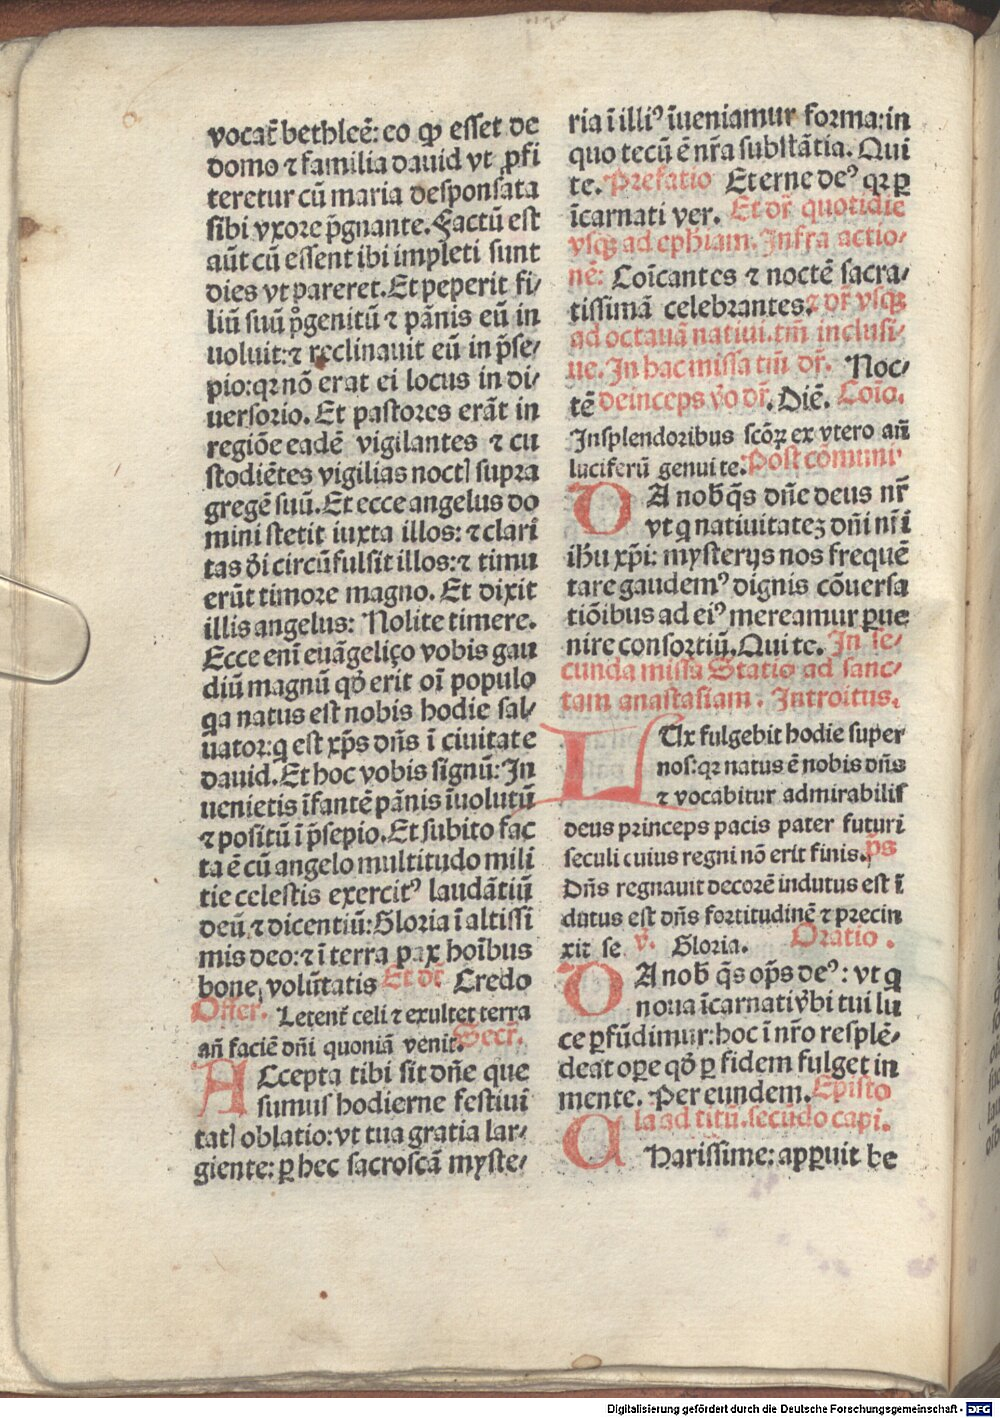 vocat̃ bethleē: eo ꝙ esset de
domo ⁊ familia dauid vt ꝓfi
teretur cū maria desponsata
sibi vxore p̄gnante. Factū est
aūt cū essent ibi impleti sunt
dies vt pareret. Et peperit fi/
liū suū p̲̊genitū ⁊ pānis eū in
uoluit: ⁊ reclinauit eū in p̄se/
pio: qꝛ nō erat ei locus in di/
uersorio. Et pastores erāt in
regiōe eadē vigilantes ⁊ cu
stodiētes vigilias noctꝭ supra
gregē suū. Et ecce angelus do
mini stetit iuxta illos: ⁊ clari
tas d̄i circūfulsit illos: ⁊ timu
erūt timore magno. Et dixit
illis angelus: Nolite timere.
Ecce enī euāgeliço vobis gau
diū magnū qḋ erit oī populo
qa natus est nobis hodie sal/
uator: q est xp̄s dn̄s ī ciuitate
dauid. Et hoc vobis signū: In
uenietis īfantē pānis īuolutū
⁊ positū ī p̄sepio. Et subito fac
ta ē cū angelo multitudo mili
tie celestis exercitꝰ laudātiū
deū ⁊ dicentiū: Gloria ī altissi
mis deo: ⁊ ī terra pax hoībus
bone volūtatis Et dr̄ Credo
Offer. Letent̃ celi ⁊ exultet terra
añ faciē dn̄i quoniā venit. Secr̄.
ACcepta tibi sit dn̄e que
sumus hodierne festiui
tatꝭ oblatio: vt tua gratia lar/
giente: ꝑ hec sacroscā myste/
ria ī illiꝰ īueniamur forma: in
quo tecū ē nr̄a substātia. Qui
tc. Prefatio Eterne deꝰ qꝛ ꝑ
īcarnati ver. Et dr̄ quotidie
vsqꝫ ad ephiam. Infra actio/
nē: Coīcantes ⁊ noctē sacra/
tissimā celebrantes. ⁊ dr̄ vsqꝫ
ad octauā natiui. tm̄ inclusi/
ue. In hac missa tm̄ dr̄. Noc/
tē deinceps v̊o dr̄. Diē. Coīo.
Insplendoribus scōꝝ ex vtero añ
luciferū genui te. Post cōmuni
DA nob̄ q̄s dn̄e deus nr̄
vt q natiuitateꝫ dn̄i nr̄i
ihū xp̄i: mysterijs nos frequē
tare gaudemꝰ dignis cōuersa
tiōibus ad eiꝰ mereamur ꝑue
nire consortiū. Qui tc. In se/
cunda missa Statio ad sanc/
tam anastasiam. Introitus.
LUx fulgebit hodie super
nos: qꝛ natus ē nobis dn̄s
⁊ vocabitur admirabilis
deus princeps pacis pater futuri
seculi cuius regni nō erit finis. p̄s
Dn̄s regnauit decorē indutus est ī
dutus est dn̄s fortitudinē ⁊ precin
xit se v̄. Gloria. Oratio.
DA nob̄ q̄s op̄s deꝰ: vt q
noua īcarnati v̊bi tui lu
ce ꝑfūdimur: hoc ī nr̄o resplē/
deat oꝑe qḋ ꝑ fidem fulget in
mente. Per eundem. Episto
la ad titū. secūdo capi.
CHarissime: apꝑuit be
Digitalisierung gefördert durch die Deutsche Forschungsgemeinschaft - DFG